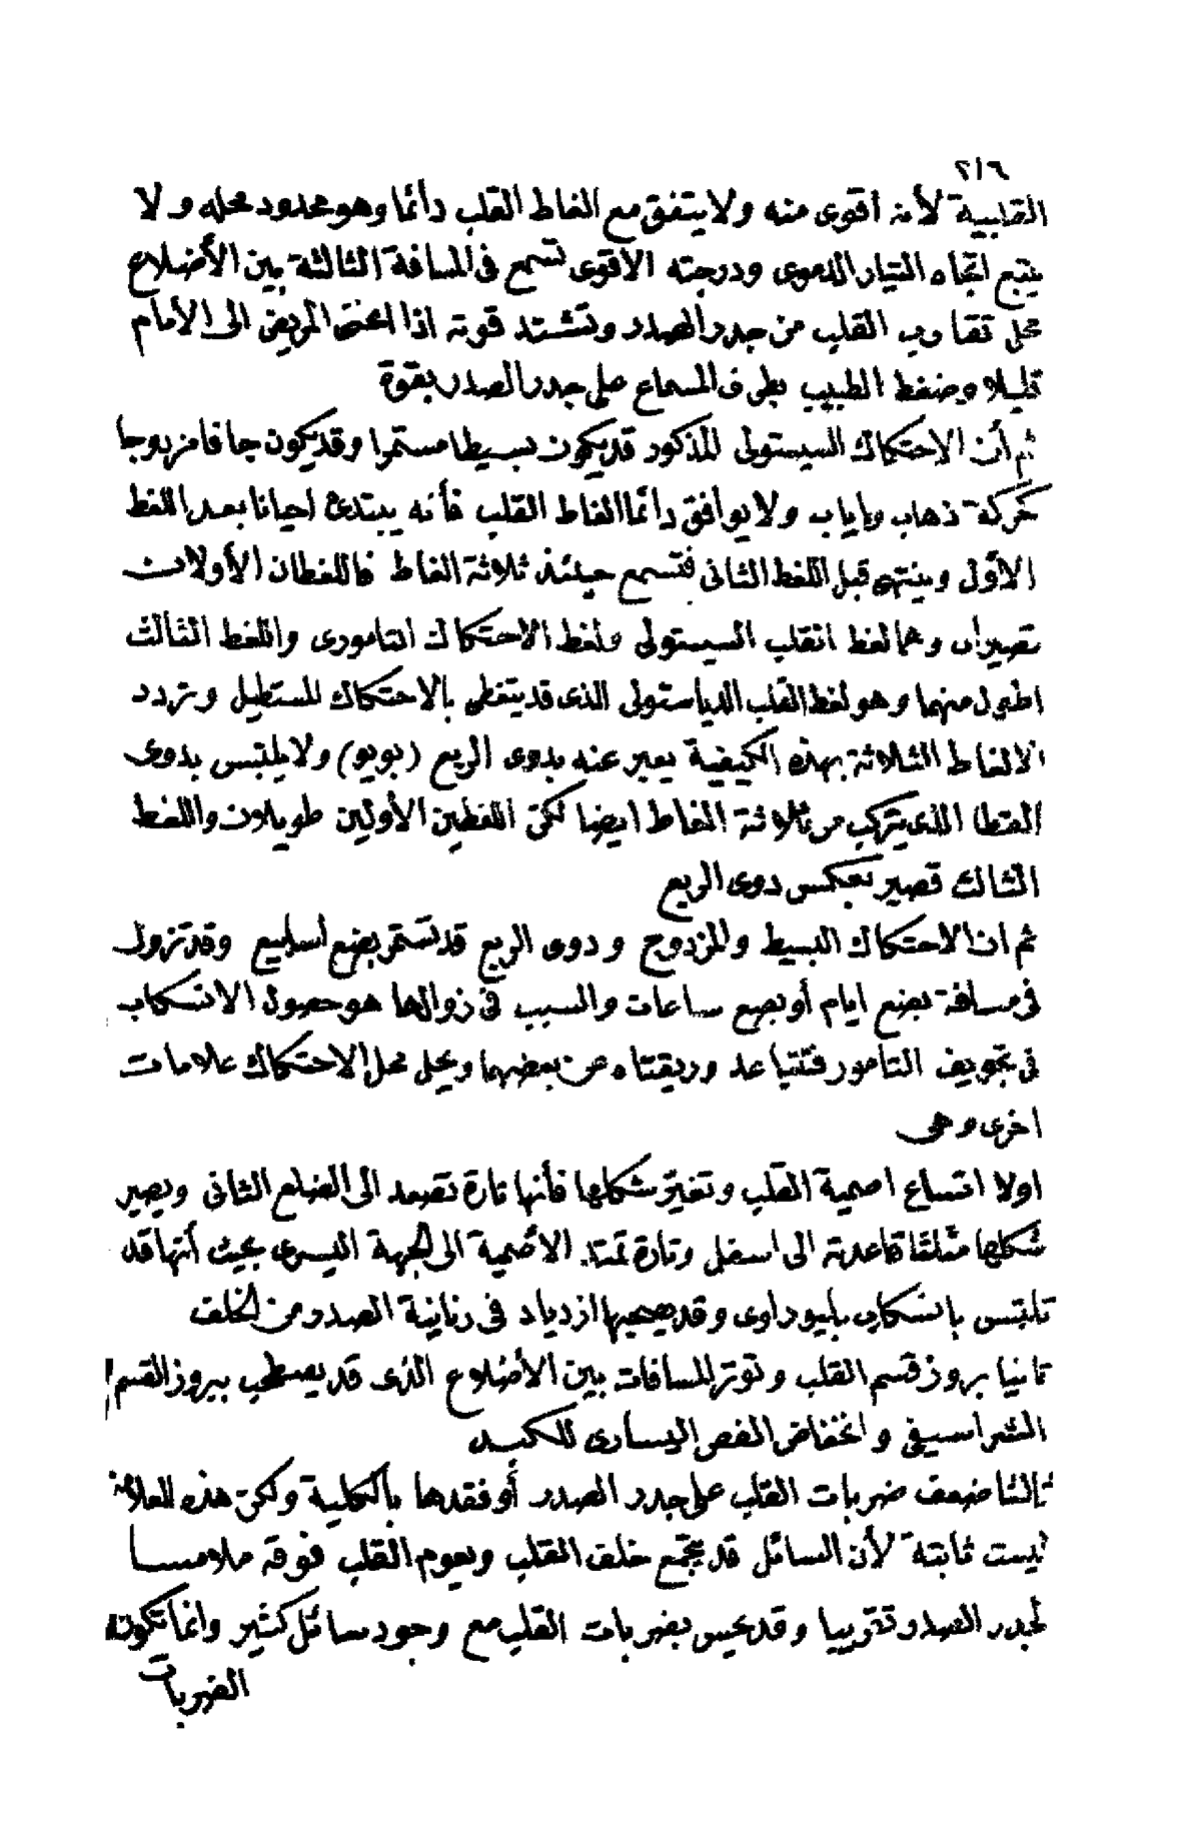 ٢١٦
القلبية لأنه اقوى منه ولا يتفق مع الغاط القلب دائما وهو محدود محله ولا
يتبع اتجاه التيار الدموى ودرجته الاقوى تسمع فى المسافة الثالثة بين الأضلاع
محل تقارب القلب من جدر الصدر وتشتد قوته اذا انحنى المريض الى الأمام
قليلا وضغط الطبيب بطرف المسماع على جدر الصدر بقوة
ثم أن الاحتكاك السيستولى المذكور قد يكون بسيطا مستمرا وقد يكون جافا مزدوجا
كحركة ذهاب واياب ولا يوافق دائما الغاط القلب فأنه يبتدئ احيانا بعد اللغط
الاوّل وينتهى قبل اللغط الثانى فتسمع حينئذ ثلاثة الغاط فاللغطان الأولان
قصيران وهما لغط القلب السيستولى ولغط الاحتكاك التامورى واللغط الثالث
اطول منهما وهو لغط القلب الدياستولى الذى قد يتغطى بالاحتكاك المستطيل وتردد
الالغاط الثلاثة بهذه الكيفية يعبر عنه بدوى الربع (بوبو) ولا يلتبس بدوى
القطا الذى يتركب من ثلاثة الغاط ايضا لكن اللغطين الأولين طويلان واللغط
الثالث قصير بعكس دوى الربع
ثم ان الاحتكاك البسيط والمزدوج ودوى الربع قد تستمر بضع اسابيع وقد تزول
فى مسافة بضع ايام أو بضع ساعات والسبب فى زوالها هو حصول الانسكاب
فى تجويف التامور فتتباعد وريقتاه عن بعضهما ويحل محل الاحتكاك علامات
اخرى وهى
اولا اتساع اصمية القلب وتغيّر شكلها فأنها تارة تصعد الى الضلع الثانى ويصير
شكلها مثلثا قاعدته الى اسفل وتارة تمتد الأصمية الى الجهة اليسرى بحيث أنها قد
تلتبس بانسكاب بليوراوى وقد يصحبها ازدياد فى رنانية الصدر من الخلف
ثانيا بروز قسم القلب وتوتر المسافات بين الأضلاع الذى قد يصطحب ببروز القسم
الشراسيفى وانخفاض الفص اليسارى للكبد
ثالثا ضعف ضربات القلب على جدر الصدر أو فقدها بالكلية ولكن هذه العلامة
ليست ثابتة لأن السائل قد يجتمع خلف القلب ويعوم القلب فوقه ملامسا
لجدر الصدر تقريبا وقد يحس بضربات القلب مع وجود سائل كثير وانما تكون
الضربات